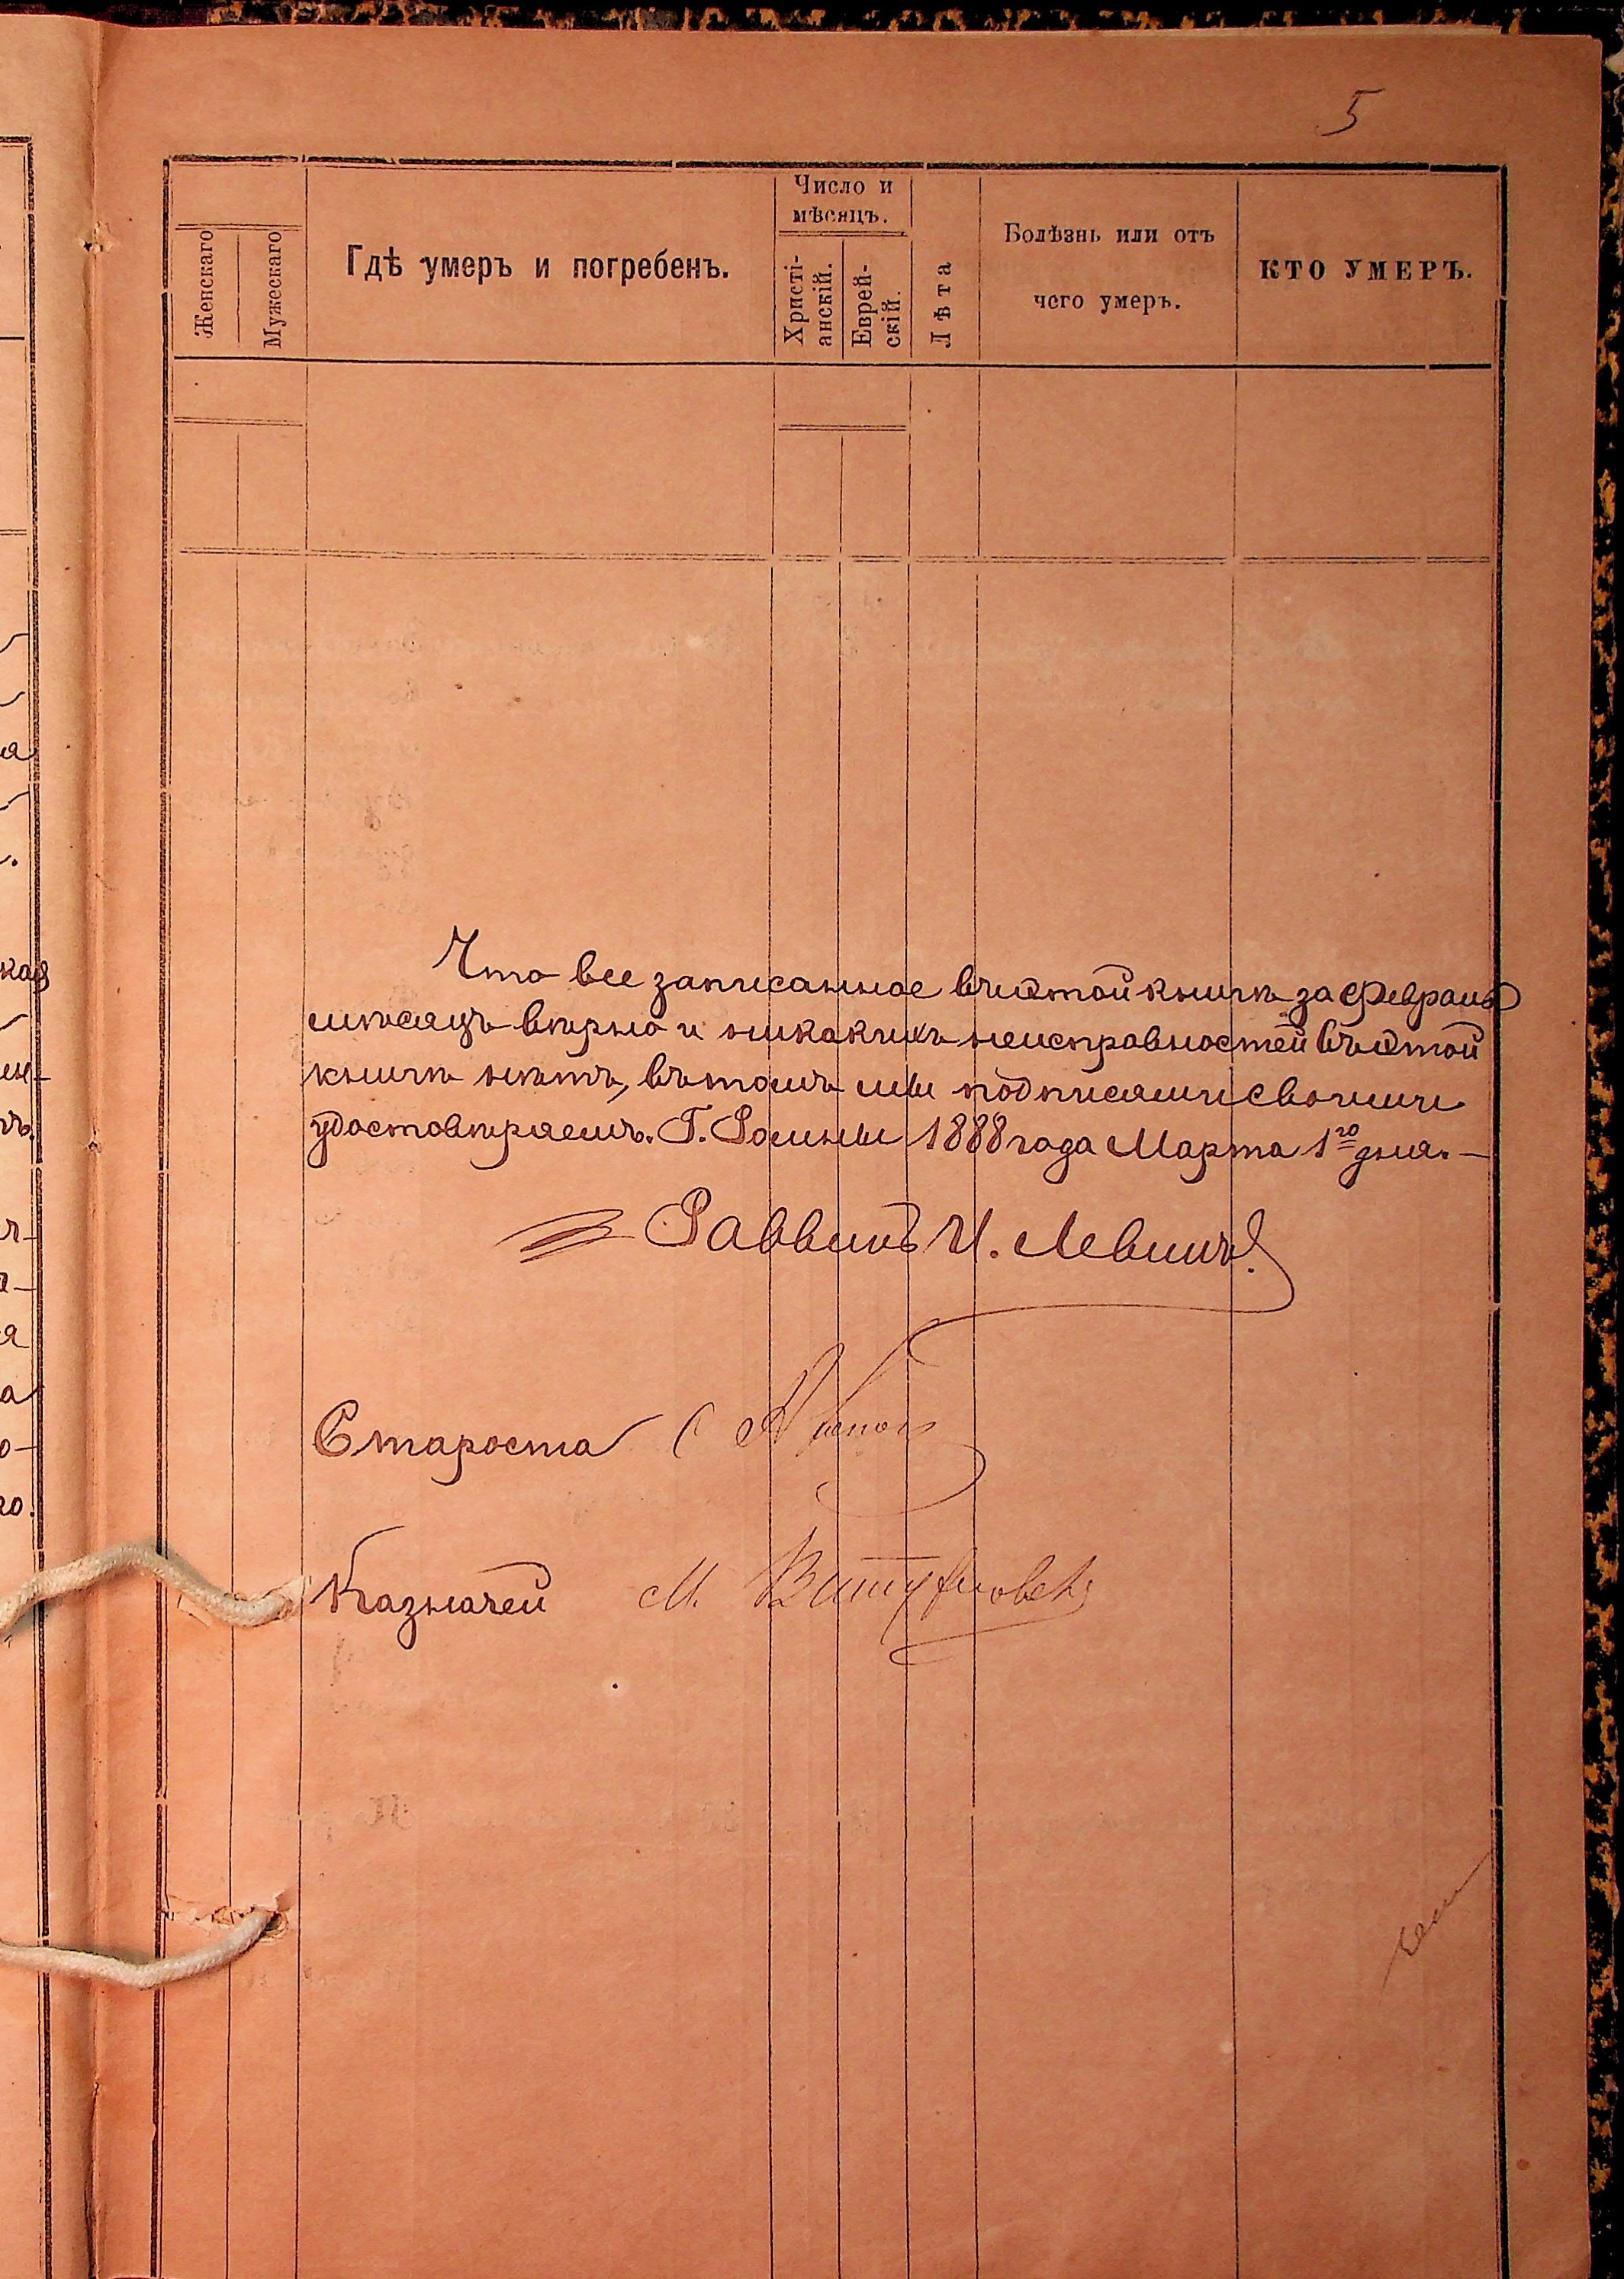 5
Женскаго
Мужескаго
Гдѣ умеръ и погребенъ.
Число и
мѣсяцъ.
Христі-
анскій.
Еврей-
скій.
Лѣта
Болѣзнь или отъ
чего умеръ.
КТО УМЕРЪ.
Что все записанное въ этой книгѣ за Февраль
мѣсяцъ вѣрно и никакихъ неисправностей въ этой
книгѣ нѣтъ, въ томъ мы подписями своими
удостовѣряемъ. Г. Ромны 1888 года Марта 1го дня. —
Раввинъ И. Левинъ
Староста
Казначей М.